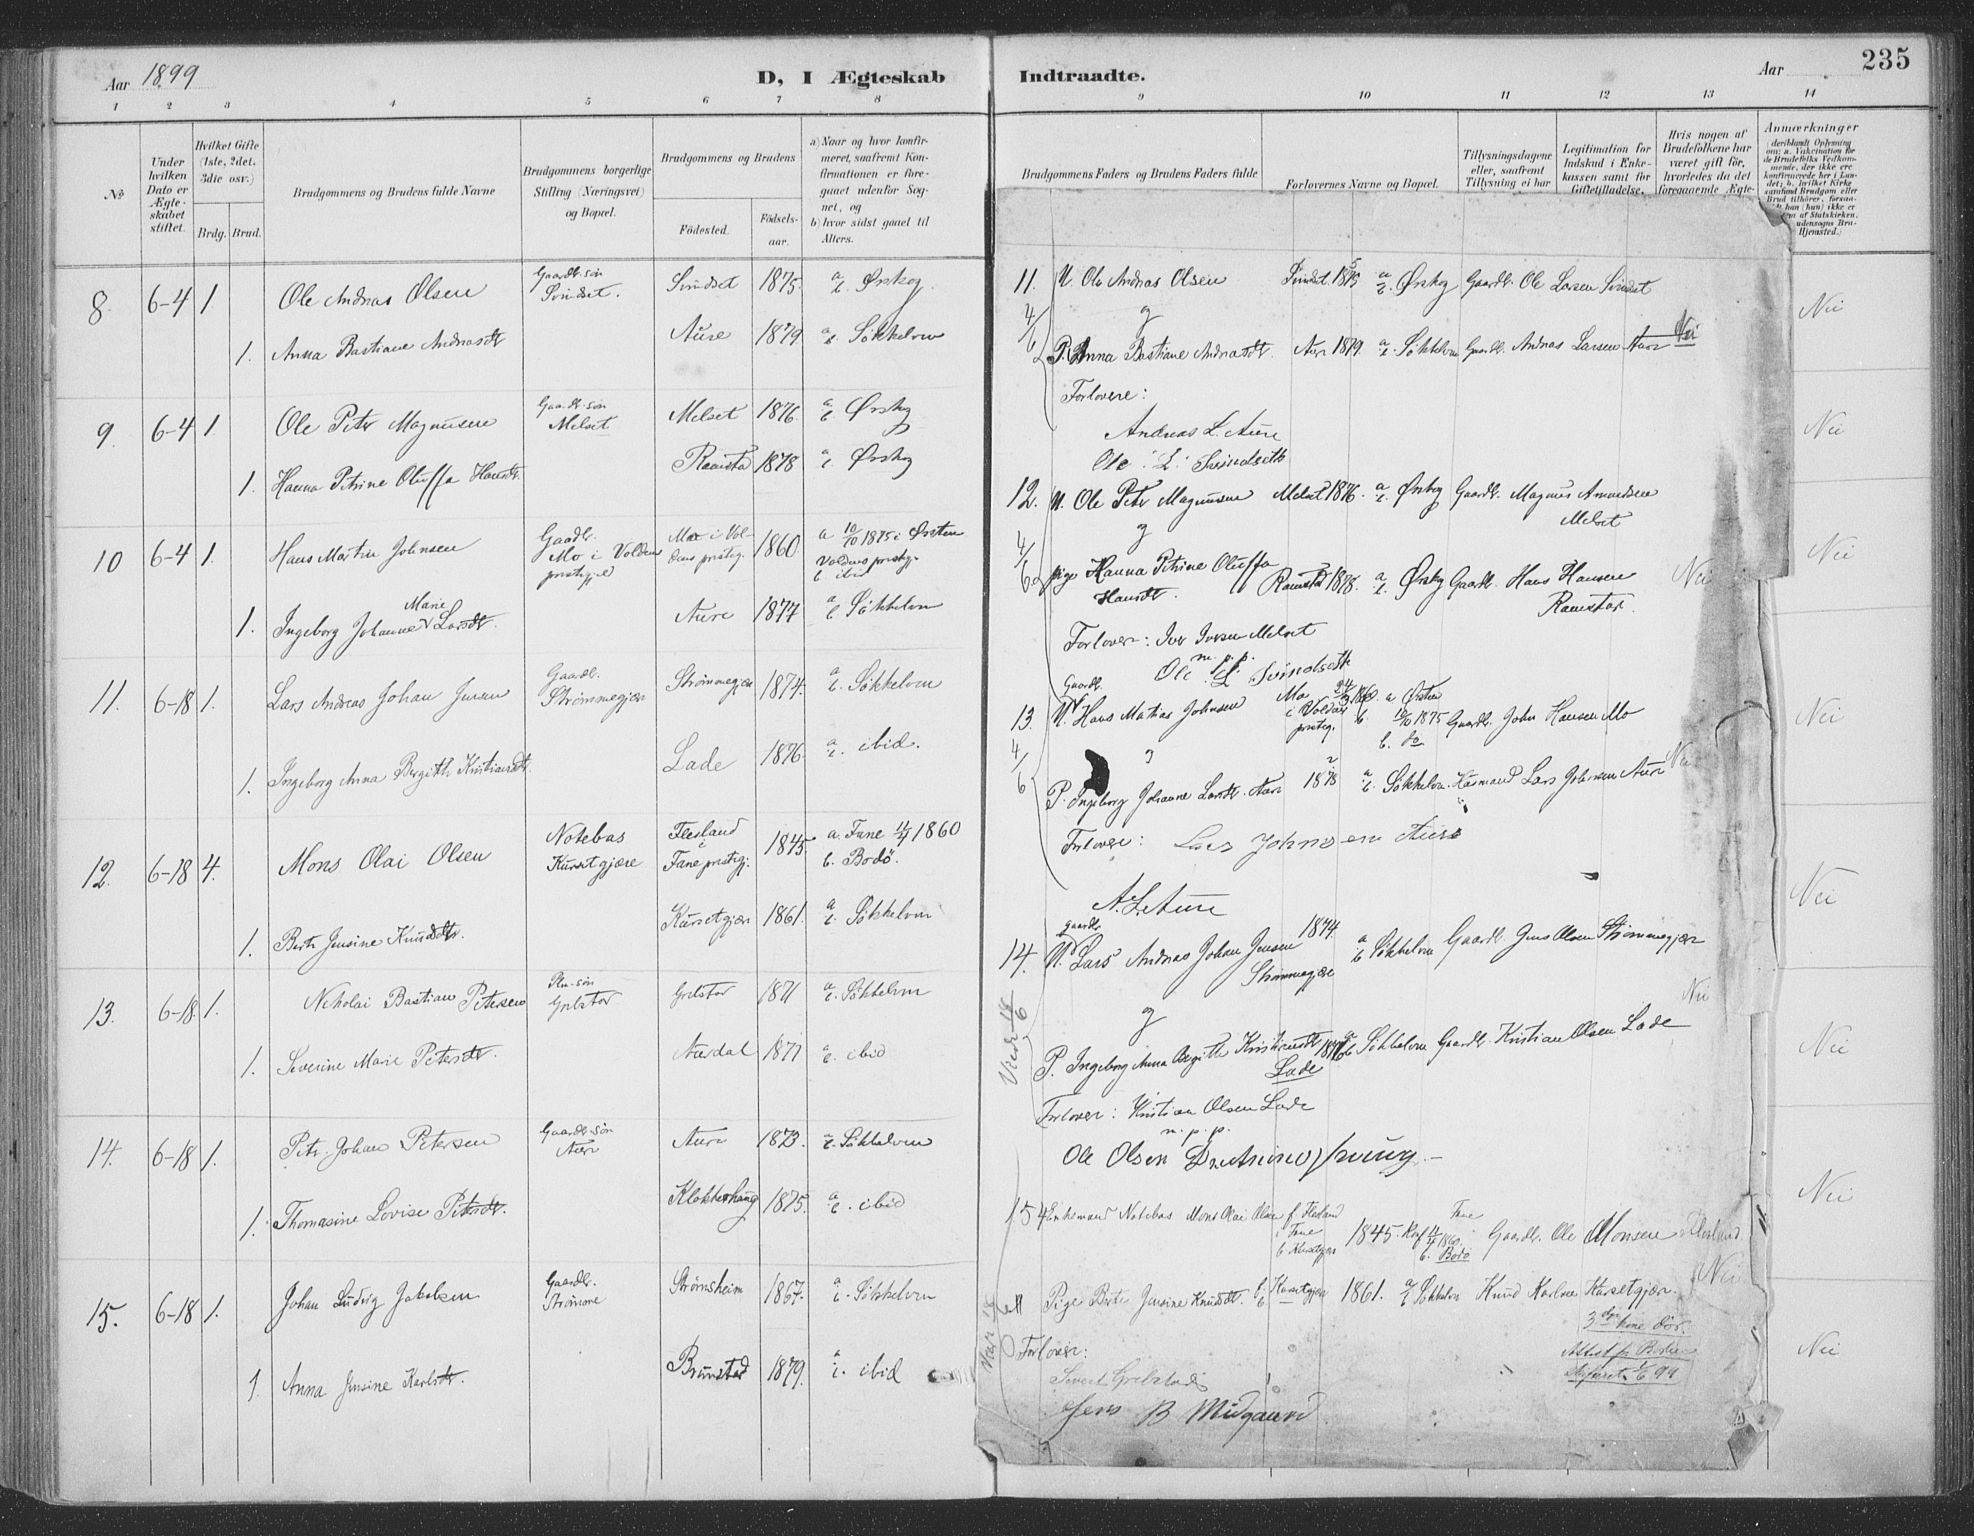 Aar 1899
D, I Ægteskab
Indtraadte.
Aar
235
1 2 3 4 5 6 7 8 9 10 11 12 13 14
№
Under hvilken Dato er Ægteskabet stiftet.
Hvilket Gifte (1ste, 2det, 3die osv.)
Brdg. Brud.
Brudgommens og Brudens fulde Navne
Brudgommens borgerlige Stilling (Næringsvei) og Bopæl.
Brudgommens og Brudens
Födested. Födsels-aar.
a) Naar og hvor konfirmeret, saafremt Konfirmationen er foregaaet udenfor Sognet, og
b) hvor sidst gaaet til Alters.
Brudgommens Faders og Brudens Faders fulde
Forlovernes Navne og Bopæl.
Tillysningsdagene eller, saafremt Tillysning ei har
Legitimation for Indskud i Enkekassen samt for Giftetilladelse,
Hvis nogen af Brudefolkene har været gift før, hvorledes da det foregaaende Ægte-
Anmærkninger
8. 6-4 1. Ole Andreas Olsen Gaardbr. søn Svindset. Svindset 1875. a b. Ørskog.
1. Anna Bastiane Andreasdt Aure 1879 a b. Søkkelven
9. 6-4 1. Ole Peter Magnusen Gaardbr. søn Melset Melset 1876. a b. Ørskog
1. Hanna Petrine Oluffa Hansdt. Ramstad 1878 a b. Ørskog
10 6-4 1. Hans Martin Johnsen Gaardbr. Mo i Voldens prestegjeld Mo i Voldens prestg. 1860. a 10/10 1875 i Ørsten Voldens prestgj. b ibid
1. Ingeborg Johanne Marie Larsdt. Aure 1877 a b. Søkkelven
11. 6-18 1. Lars Andreas Johan Jensen Gaardbr. Strømmegjær Strømmegjær 1874. a b. Søkkelven
1. Ingeborg Anna Bergithe Kristiansdt Lade 1876. a b. ibid.
12. 6-18 4. Mons Olai Olsen Notebas Kursetgjære Flesland i Fane prestgj. 1845. a. Fane 1860 b. Bodö.
1. Berte Jensine Knudsdtr. Kursetgjær 1861. a b. Søkkelven
13. 6-18 1. Nikolai Bastian Petersen Grebstad Grebstad 1871 a b. Søkkelven
1. Severine Marie Petersdt. Aurdal 1871 a b. ibid
14. 6-18 1. Peter Johan Petersen Gaardbr. søn Aure Aure 1873. a b. Søkkelven
1. Thomasine Lovise Petersdt. Klokkerhaug 1875. a b. ibid
15. 6-18 1. Johan Ludvig Jakobsen Gaardbr. Strømsheim 1867. a b. Søkkelven
1. Anna Jensine Karlsdt. Brunstad 1879. a b. ibid
11. U. Ole Andreas Olsen Svindset 1875 a b. Ørskog Gaardbr. Ole Larsen Svindset
og
4/6 P. Anna Bastiane Andreasdt. Aure 1879. a b. Søkkelven Gaardbr. Andreas Larsen Aure Nei
Forlovere:
Andreas L. Aure
Ole L. Svindseth
12. U. Ole Peter Magnusen Melset 1876. a b. Ørskog Gaardbr. Magnus Amundsen Melset
og
4/6 pige Hanna Petrine Oluffa Hansdt. Ramstad 1878. a b. Ørskog Gaardbr. Hans Hansen Ramstad. Nei
Forlover: Iver Iversen Melset
m.p.p.
Ole L. Svindseth
13. Gaardbr. U. Hans Matias Johnsen Mo i Voldens prestg. a Ørsten 10/10 1875 b. do Gaardbr. John Hansen Mo
4/6 P. Ingeborg Johanne Larsdt. Aure 1878 a b. Søkkelven Husmand Lars Johnsen Aure Nei
Forlovere: Lars Johnsen Aure
A. L. Aure
14. Gaardbr. U. Lars Andreas Johan Jensen Strømmegjær 1874. a b Søkkelven Gaardbr. Jens Olsen Strømmegjær
og
Viede 18/6
P. Ingeborg Anna Bergithe Kristiansdt Lade a b Søkkelven Gaardbr. Kristian Olsen Lade Nei
Forlover: Kristian Olsen Lade
m.p.p.
Ole Olsen
15 Enkemand Notebas Mons Olai Olsen f. Flesland i Fane b. Kursetgjær 1845. Konf. Fane 1860. b. Bodö Gaardbr. Ole Monsen Flesland
Pige Berte Jensine Knudsdt. f. b Kursetgjær 1861. a b Søkkelven Knud Karlsen Kursetgjær. Nei
Forlover: 3die kone död.
Attest fr. Bodin
Sivert Grebstad
Jens B Midgaard
Nei
Nei
Nei
Nei
Nei
Nei
Nei
Nei